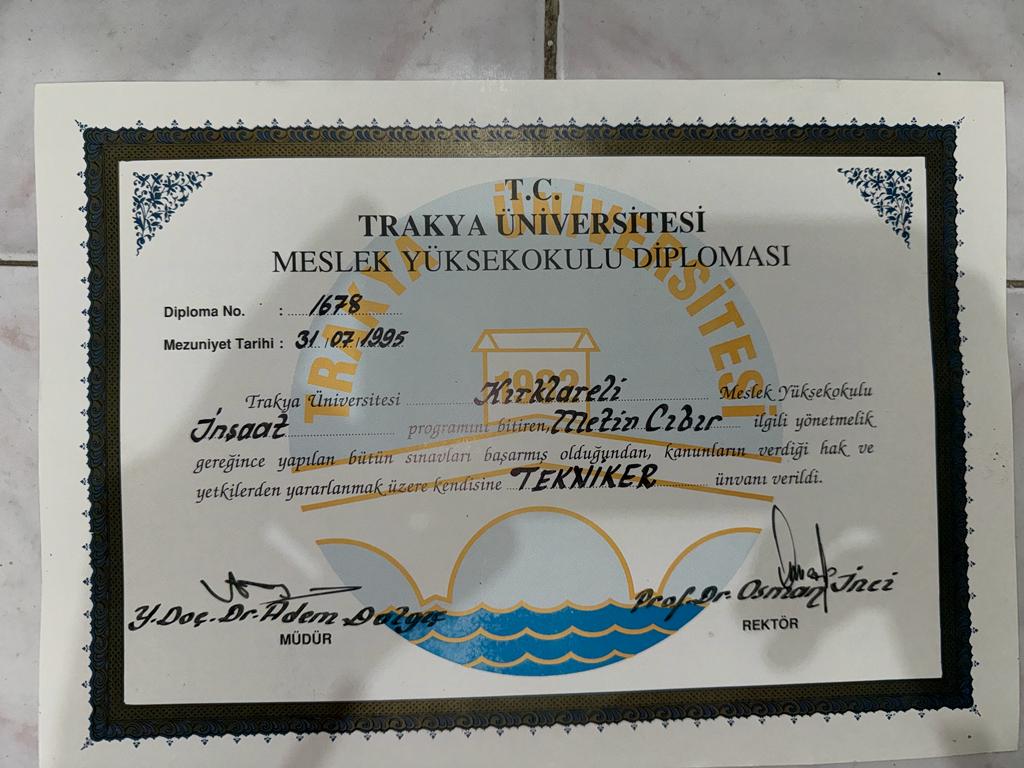 T.C.
TRAKYA ÜNİVERSİTESİ
MESLEK YÜKSEKOKULU DİPLOMASI
TRAKYA ÜNİVERSİTESİ
1982
Diploma No. : 1678
Mezuniyet Tarihi : 31/07/1995
Trakya Üniversitesi Kırklareli Meslek Yüksekokulu
İnşaat programını bitiren, Metin Cıbır ilgili yönetmelik
gereğince yapılan bütün sınavları başarmış olduğundan, kanunların verdiği hak ve
yetkilerden yararlanmak üzere kendisine TEKNİKER ünvanı verildi.
Y.Doç.Dr.Adem Dalgıç
MÜDÜR
Prof.Dr.Osman İnci
REKTÖR